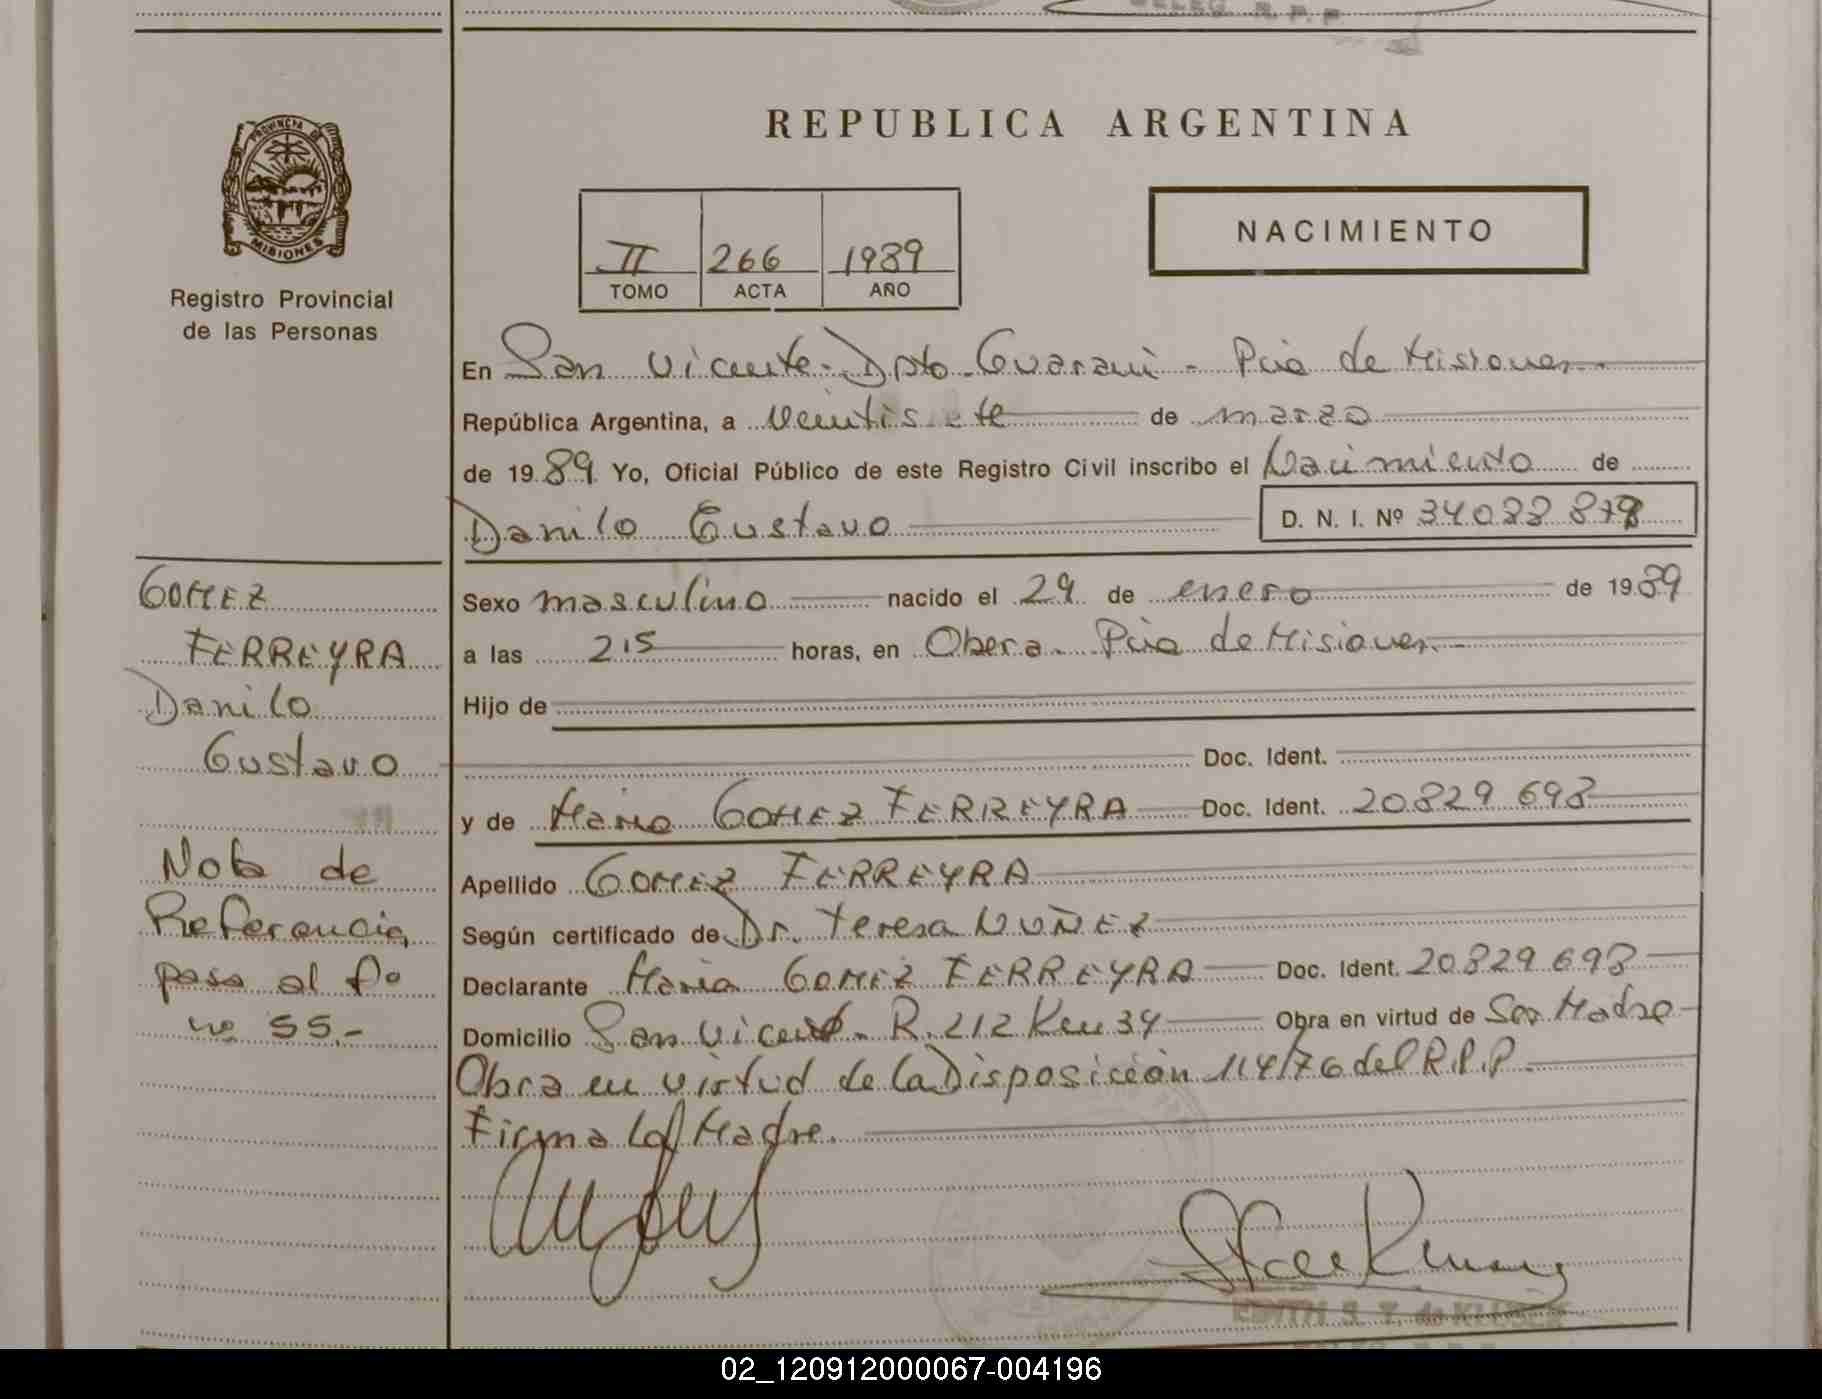 REPUBLICA ARGENTINA
PROVINCIA DE
MISIONES
Registro Provincial
de las Personas
II 266 1989
TOMO ACTA AÑO
NACIMIENTO
En San Vicente - Dpto. Guarani - Pcia de Misiones
República Argentina, a veintisiete de marzo
de 19 89 Yo, Oficial Público de este Registro Civil inscribo el Nacimiento de
Danilo Gustavo D. N. I. Nº 34088
GOMEZ
FERREYRA
Danilo
Gustavo
Sexo masculino nacido el 29 de enero de 19 89
a las 2 15 horas, en Obera. Pcia de Misiones
Hijo de
Doc. Ident.
y de Maria GOMEZ FERREYRA Doc. Ident. 20829 698
Nota de
Referencia
pasa al fo
no 55.-
Apellido GOMEZ FERREYRA
Según certificado de Dr. Teresa NUÑEZ
Declarante Maria GOMEZ FERREYRA Doc. Ident. 20829 698
Domicilio San Vicente. R. 212 Km 34 Obra en virtud de Ser Madre
Obra en virtud de la Disposición 114/76 del R.P.P.
Firma la Madre.
EDITH S. T. de
02_120912000067-004196